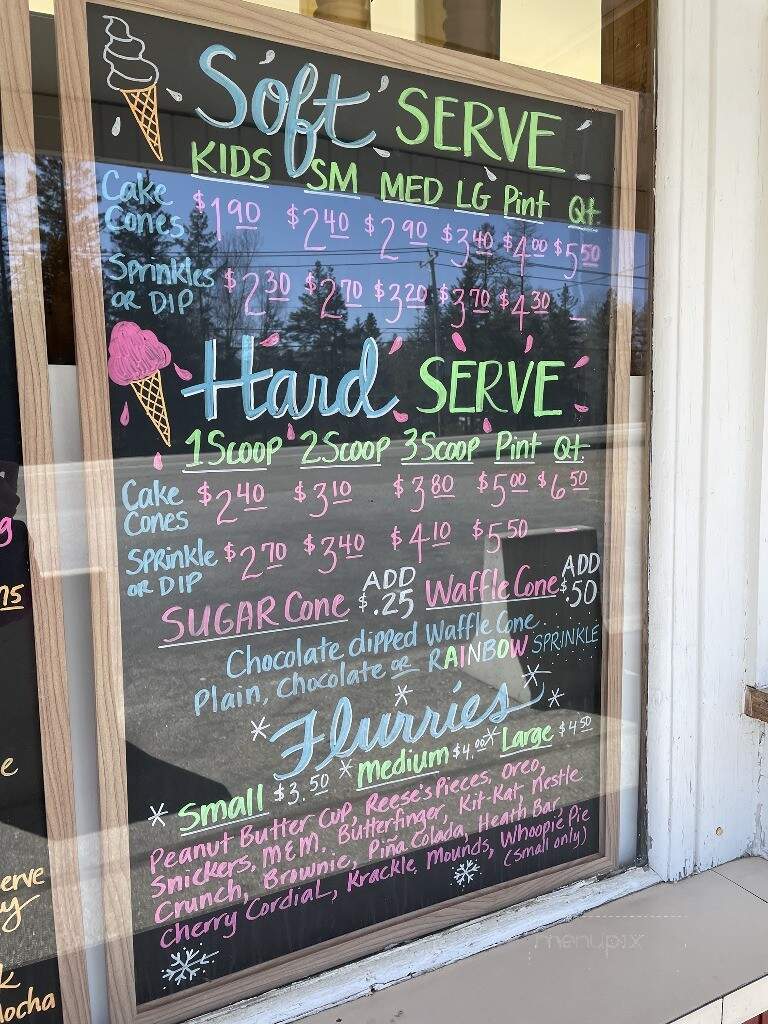 Soft SERVE
KIDS SM MED LG Pint Qt
Cake Cones $1.90 $2.40 $2.90 $3.40 $4.00 $5.50
Sprinkles OR DIP $2.30 $2.70 $3.20 $3.70 $4.30 —
Hard SERVE
1 Scoop 2 Scoop 3 Scoop Pint Qt.
Cake Cones $2.40 $3.10 $3.80 $5.00 $6.50
SPRINKLE OR DIP $2.70 $3.40 $4.10 $5.50 —
SUGAR Cone ADD $.25 Waffle Cone ADD $.50
Chocolate dipped Waffle Cone
Plain, Chocolate OR RAINBOW SPRINKLE
Flurries
Small $3.50 * Medium $4.00 * Large $4.50
Peanut Butter Cup, Reese's Pieces, Oreo,
Snickers, M&M, Butterfinger, Kit-Kat, Nestle
Crunch, Brownie, Piña Colada, Heath Bar,
Cherry Cordial, Krackle, Mounds, Whoopie Pie
(small only)
g
75
e
erve
y
k
Mocha
menupix